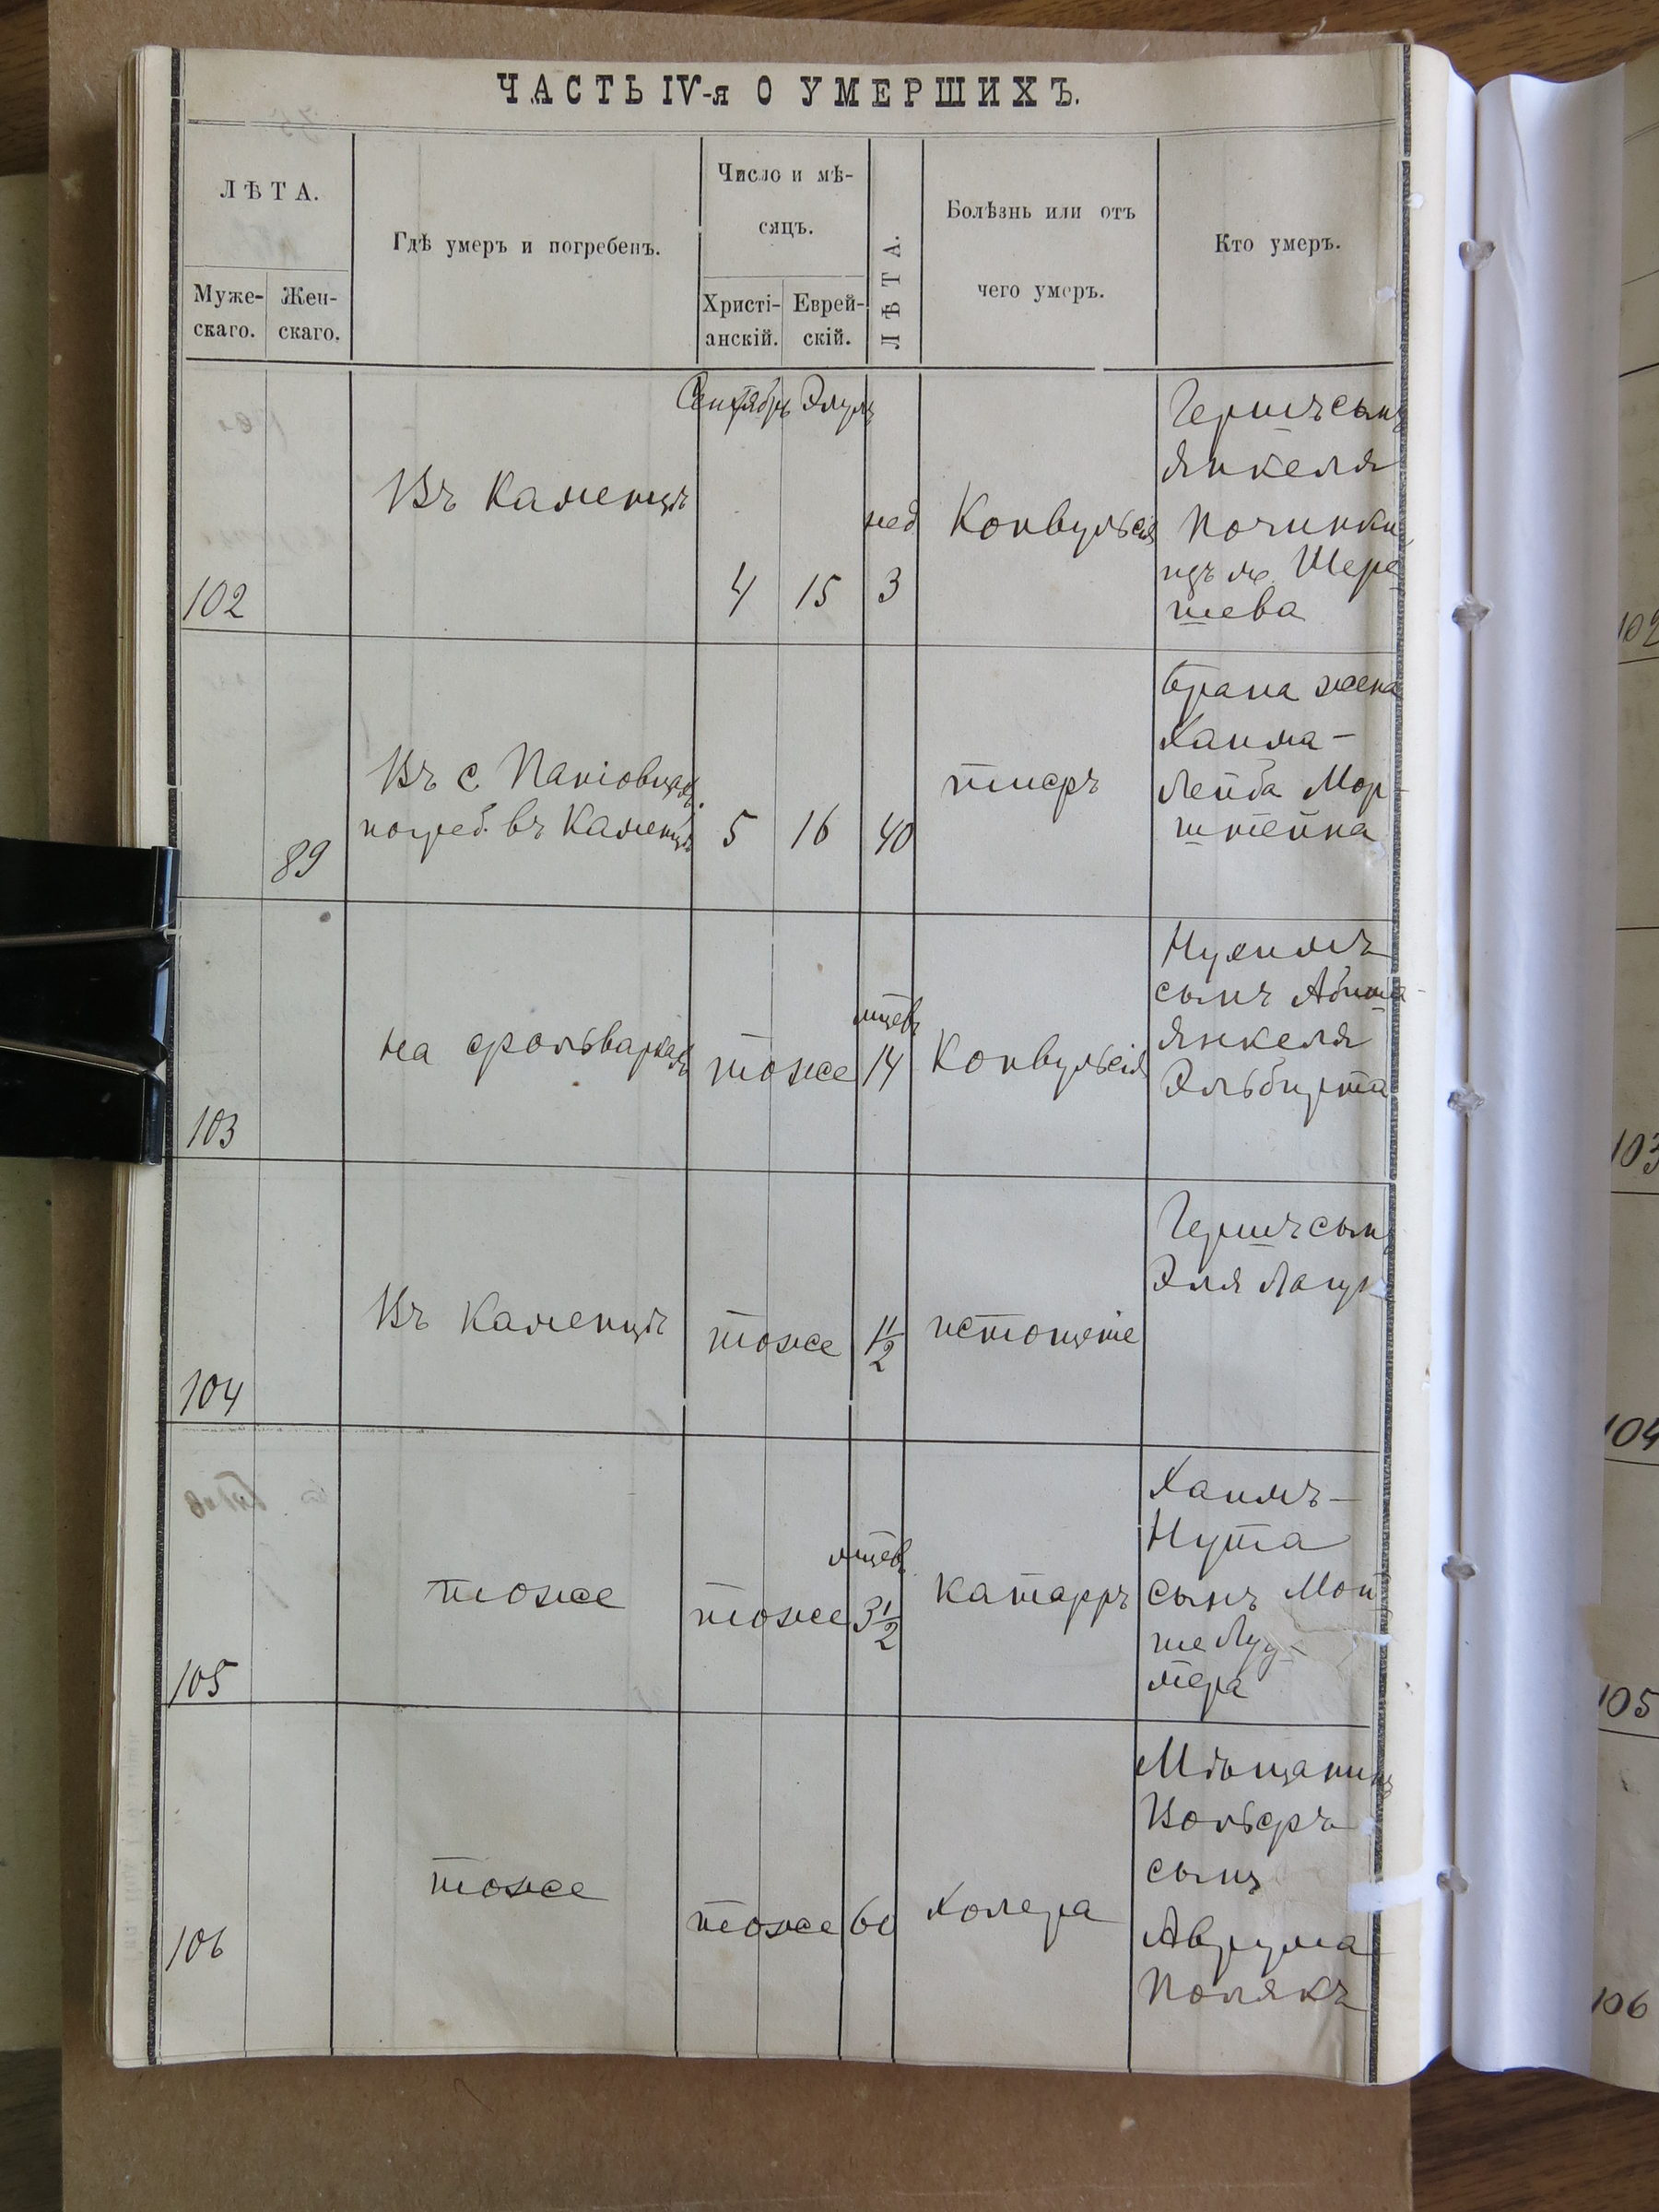 ЧАСТЬ IV-я О УМЕРШИХЪ.
ЛѢТА.
Муже-
скаго.
Жен-
скаго.
Гдѣ умеръ и погребенъ.
Число и мѣ-
сяцъ.
Христі-
анскій.
Еврей-
скій.
ЛѢТА.
Болѣзнь или отъ
чего умеръ.
Кто умеръ.
Сентябрь Элулъ
102
Въ Каменцѣ
4 15
нед
3
Конвульсія
Гершъ сынъ
Янкеля
Починки
изъ м. Шере
шева
89
Въ с
погреб. въ Каменцѣ
5 16 40
тифъ
Брана жена
Хаима-
Лейба Мор-
штейна
103
на фольваркахъ
тоже
мцев
14
Конвульсія
Нухимъ
сынъ
Янкеля
104
Въ Каменцѣ
тоже
1 1/2
истощеніе
Гершъ сынъ
Эля
105
тоже
тоже
мцев.
3 1/2
катарръ
Хаимъ-
Нута
сынъ Мой
ше
106
тоже
тоже 60
холера
Мѣщанинъ
Вольфъ
сынъ
Аврума
Полякъ
102
103
104
105
106